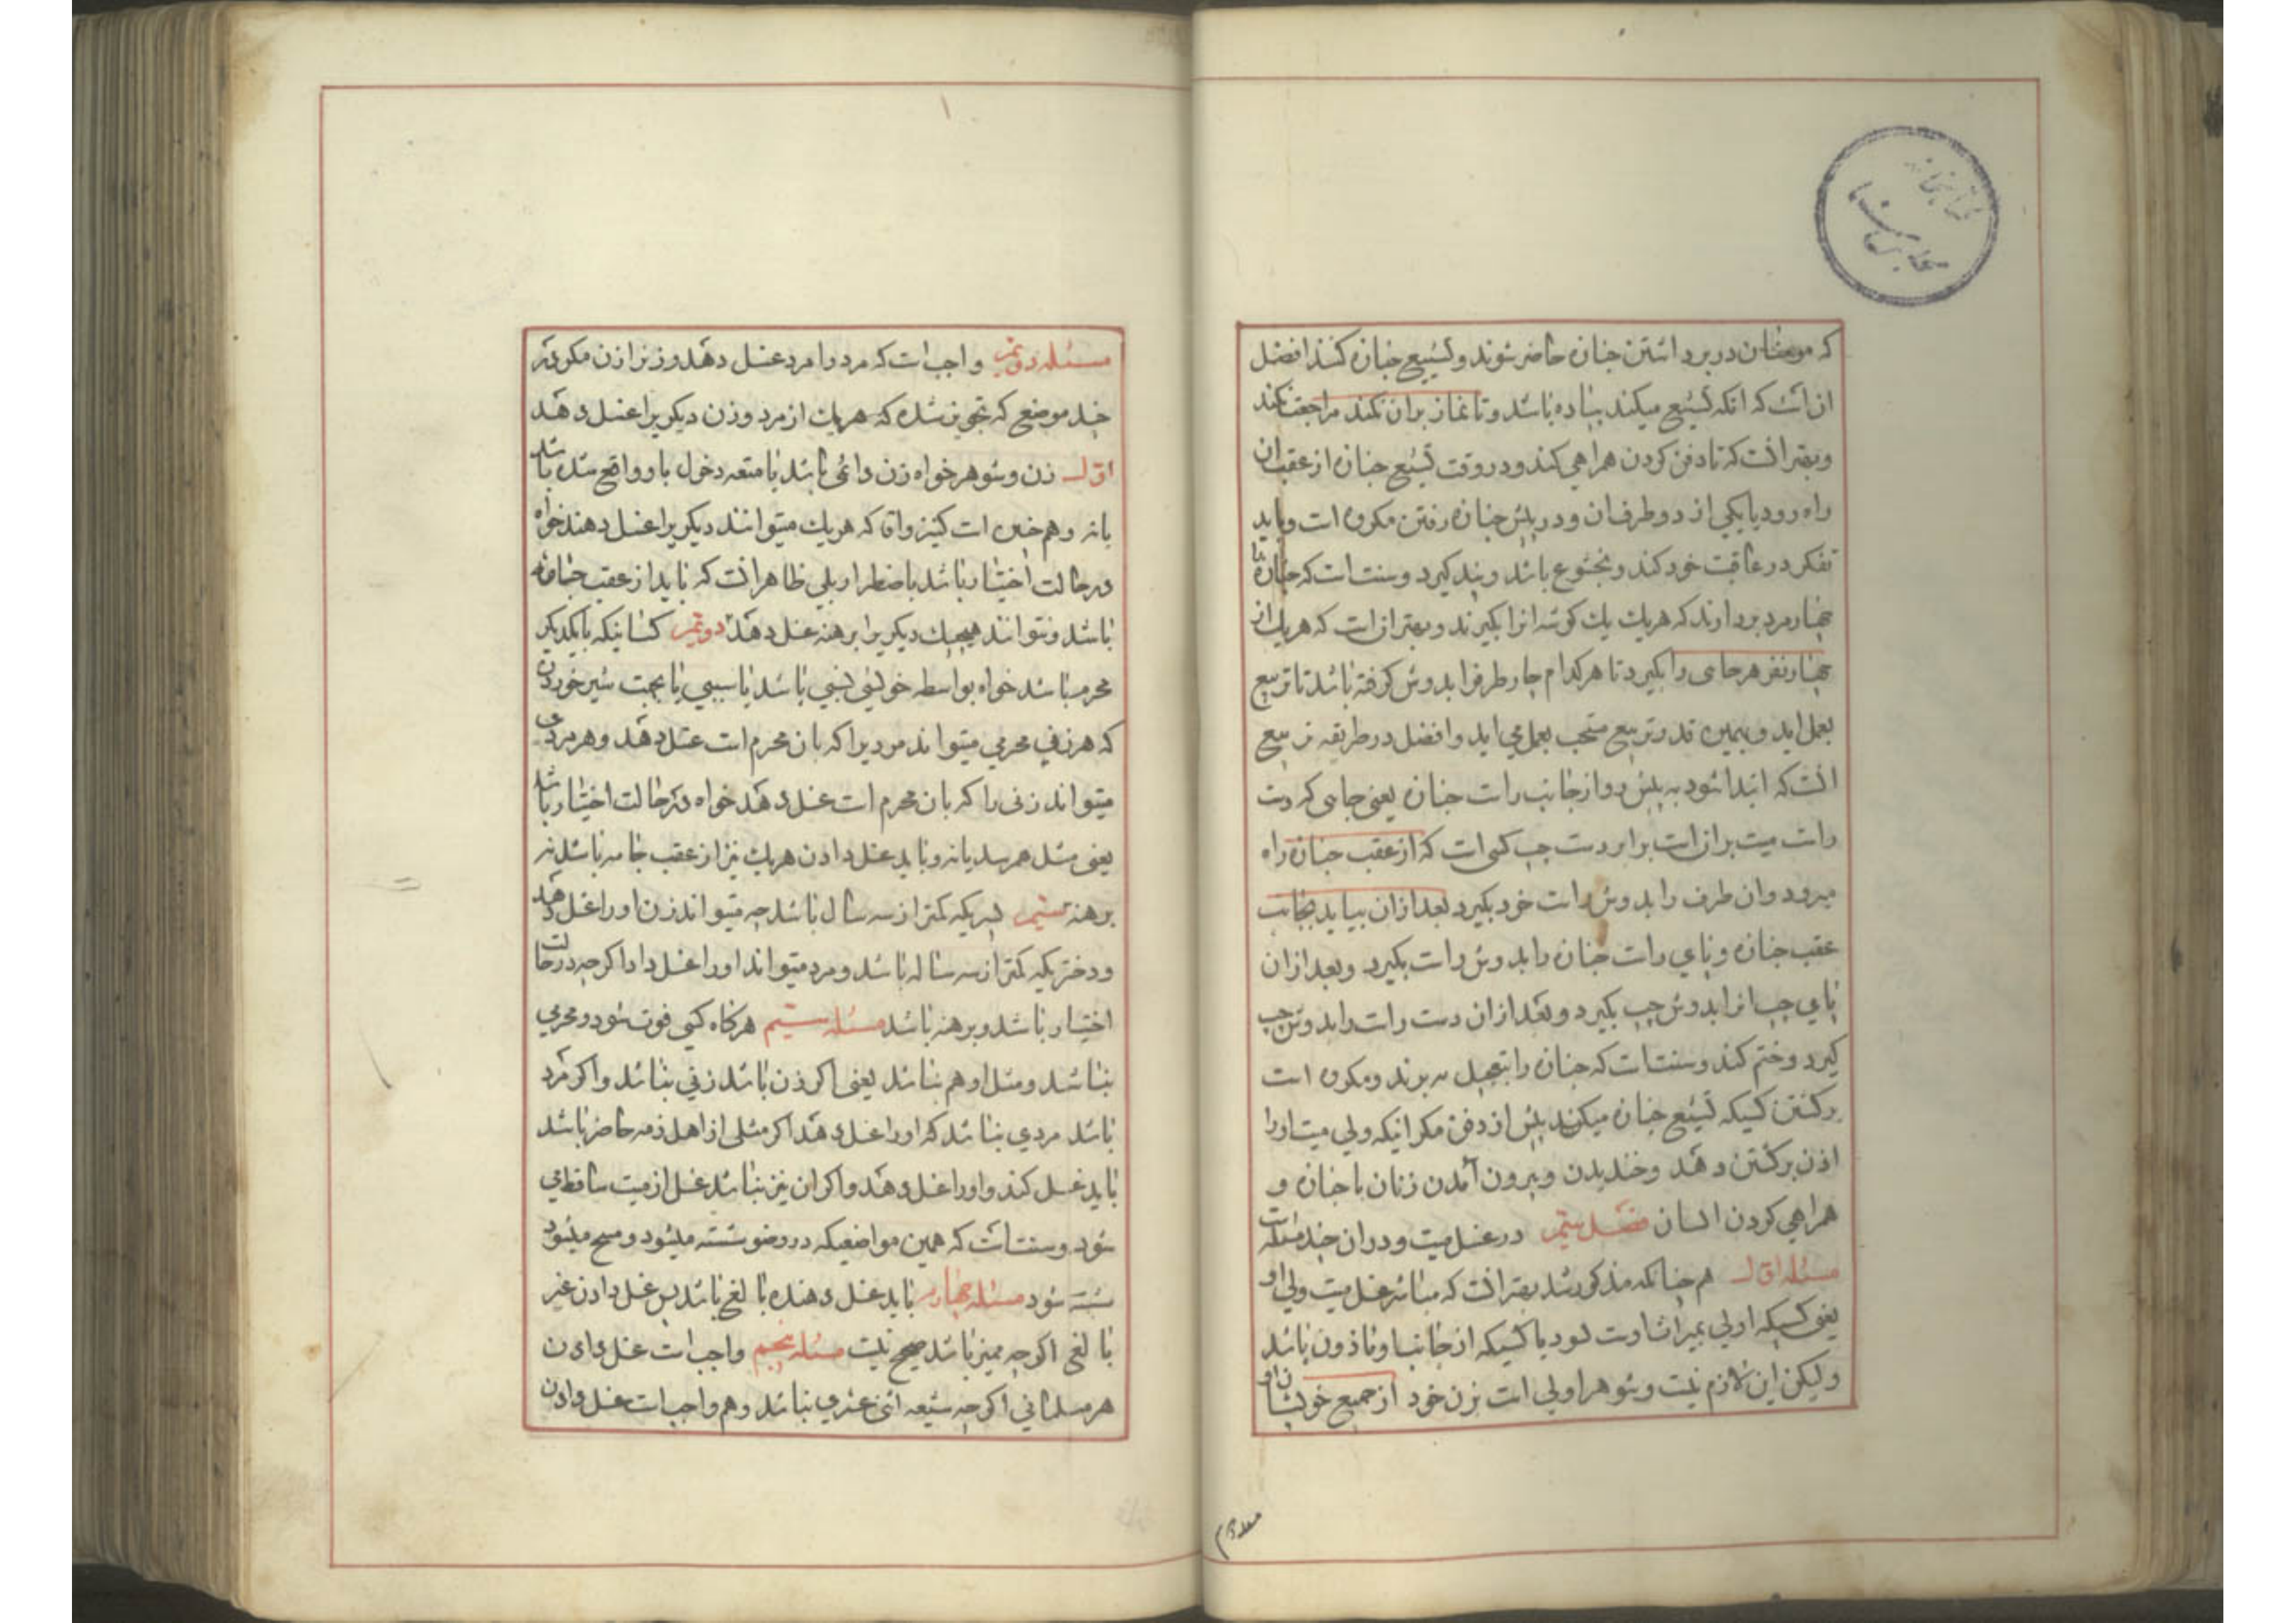 که مومنان در برداشتن جنازه حاضر شوند و تشییع جنازه کنند افضل
از انست که انکه تشییع میکند پیاده باشد و تا نماز بران نکند مراجعت نکند
و بهتر انست که تا دفن کردن همراهی کند و در وقت تشییع جنازه از عقب ان
راه رود یا یکی از دو طرف ان و در پیش جنازه رفتن مکروه است و باید
تفکر در عاقبت خود کند و بخشوع باشد و پند کیرد و سنت است که جنازه را
چهار مرد بردارند که هر یک یک کوشه انرا بکیرند و بهتر ان است که هر یک از
چهار نفر هر جایی را بکیرد تا هر کدام چار طرفرا بدوش کرفته باشد تا تربیع
بعمل اید و بهمین قدر تربیع مستحب بعمل می اید و افضل در طریقه تربیع
انست که ابتدا شود به پیش رو از جانب راست جنازه یعنی جایی که دست
راست میت بران است برابر دست چپ کسی است که از عقب جنازه راه
میرود و ان طرف را بدوش راست خود بکیرد بعد از ان بیاید بجانب
عقب جنازه و پای راست جنازه را بدوش راست بکیرد و بعد از ان
پای چپ انرا بدوش چپ بکیرد و بعد از ان دست راست را بدوش چپ
کیرد و ختم کند و سنت است که جنازه را بتعجیل به برند و مکروه است
برکشتن کسیکه تشییع جنازه میکند پیش از دفن مکر انیکه ولی میت او را
اذن برکشتن دهد و خندیدن و بیرون آمدن زنان با جنازه و
همراهی کردن ایشان فصل ستیم در غسل میت و در ان چند مسئله است
مسئله اول هم چنانکه مذکور شد بهتر انست که مباشر غسل میت ولی او
یعنی کسیکه اولی بمیراث اوست شود یا کسیکه از جانب او ماذون باشد
ولیکن این لازم نیست و شوهر اولی است بزن خود از جمیع خویشان او
مسئله دویم واجب است که مرد را مرد غسل دهد و زنرا زن مکر در
چند موضع که تجویز شده که هر یک از مرد و زن دیکریرا غسل دهد
اول زن و شوهر خواه زن دائمی باشد یا متعه دخول باو واقع شده باشد
یا نه و هم چنین است کنیز و اقا که هر یک میتوانند دیکریرا غسل دهند خواه
در حالت اختیار باشد یا ضطرار بلی ظاهر انست که باید از عقب جامه
باشد و نتوانند هیچیک دیکریرا برهنه غسل دهد دویم کسانیکه با یکدیکر
محرم باشد خواه بواسطه خویشی نسبی باشد یا سببی یا بجهت شیر خوردن
که هر زنی محرمی میتواند مردیرا که بان محرم است غسل دهد و هر مردی
میتواند زنی را که بان محرم است غسل دهد خواه در حالت اختیار باشد
یعنی مثل هم رسد یا نه و باید غسل دادن هر یک نیز از عقب جامه باشد نه
برهنه ستیم پسریکه کمتر از سه سال باشد چه میتواند زن او را غسل دهد
و دختریکه کمتر از سه ساله باشد و مرد میتواند او را غسل داد اکر چه در حالت
اختیار باشد و برهنه باشد مسئله ستیم هر کاه کسی فوت شود و محرمی
نباشد و مثل او هم نباشد یعنی اکر زن باشد زنی نباشد و اکر مرد
باشد مردی نباشد که او را غسل دهد اکر مثلی از اهل ذمه حاضر باشد
باید غسل کند و او را غسل دهد و اکر ان نیز نباشد غسل از میت ساقط می
شود و سنت است که همین مواضعیکه در وضو شسته میشود و مسح میشود
شسته شود مسئله چهارم باید غسل دهنده بالغ باشد پس غسل دادن غیر
بالغ اکر چه ممیز باشد صحیح نیست مسئله پنجم واجب است غسل دادن
هر مسلمانی اکر چه شیعه اثنی عشری نباشد و هم واجب است غسل دادن